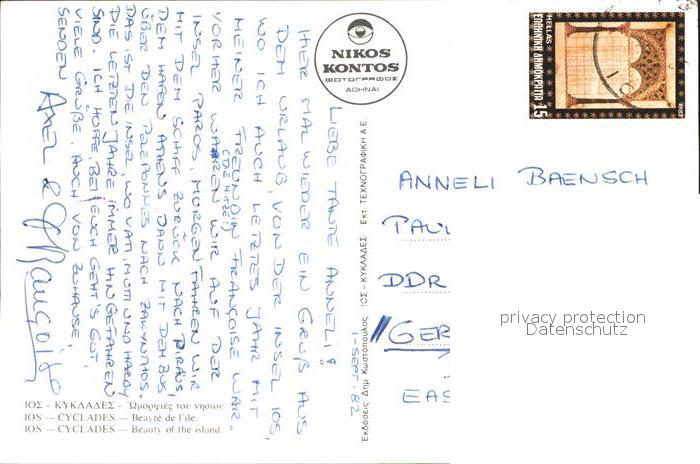 LIEBE TANTE ANNELI!
HIER MAL WIEDER EIN GRUß AUS
DEM URLAUB, VON DER INSEL IOS,
WO ICH AUCH LETZTES JAHR MIT
MEINER FREUNDIN FRANÇOISE WAR.
(DIE HITZE!)
VORHER WAREN WIR AUF DER
INSEL PAROS, MORGEN FAHREN WIR
MIT DEM SCHIFF ZURÜCK NACH PIRÄUS,
DEM HAFEN ATHENS DANN MIT DEM BUS
ÜBER DEN PELEPONNES NACH ZAKYNTHOS.
DAS IST DIE INSEL, WO VATI, MUTTI UND HARDY
DIE LETZTEN JAHRE IMMER HINGEFAHREN
SIND. ICH HOFFE, BEI EUCH GEHT'S GUT,
VIELE GRÜßE, AUCH VON ZUHAUSE,
SENDEN
AXEL & Françoise
ΙΟΣ – ΚΥΚΛΑΔΕΣ – Ομορφιές του νησιού
IOS — CYCLADES — Beayté de l'île.
IOS — CYCLADES — Beauty of the island.
NIKOS
KONTOS
ΦΩΤΟΓΡΑΦΟΣ
ΑΘΗΝΑΙ
Εκδόσεις Δημ. Κωστόπουλος ΙΟΣ – ΚΥΚΛΑΔΕΣ Εκτ. ΤΕΧΝΟΓΡΑΦΙΚΗ Α.Ε.
SEPT. 82
HELLAS
ΕΛΛΗΝΙΚΗ ΔΗΜΟΚΡΑΤΙΑ 15
ANNELI BAENSCH
DDR
privacy protection
Datenschutz